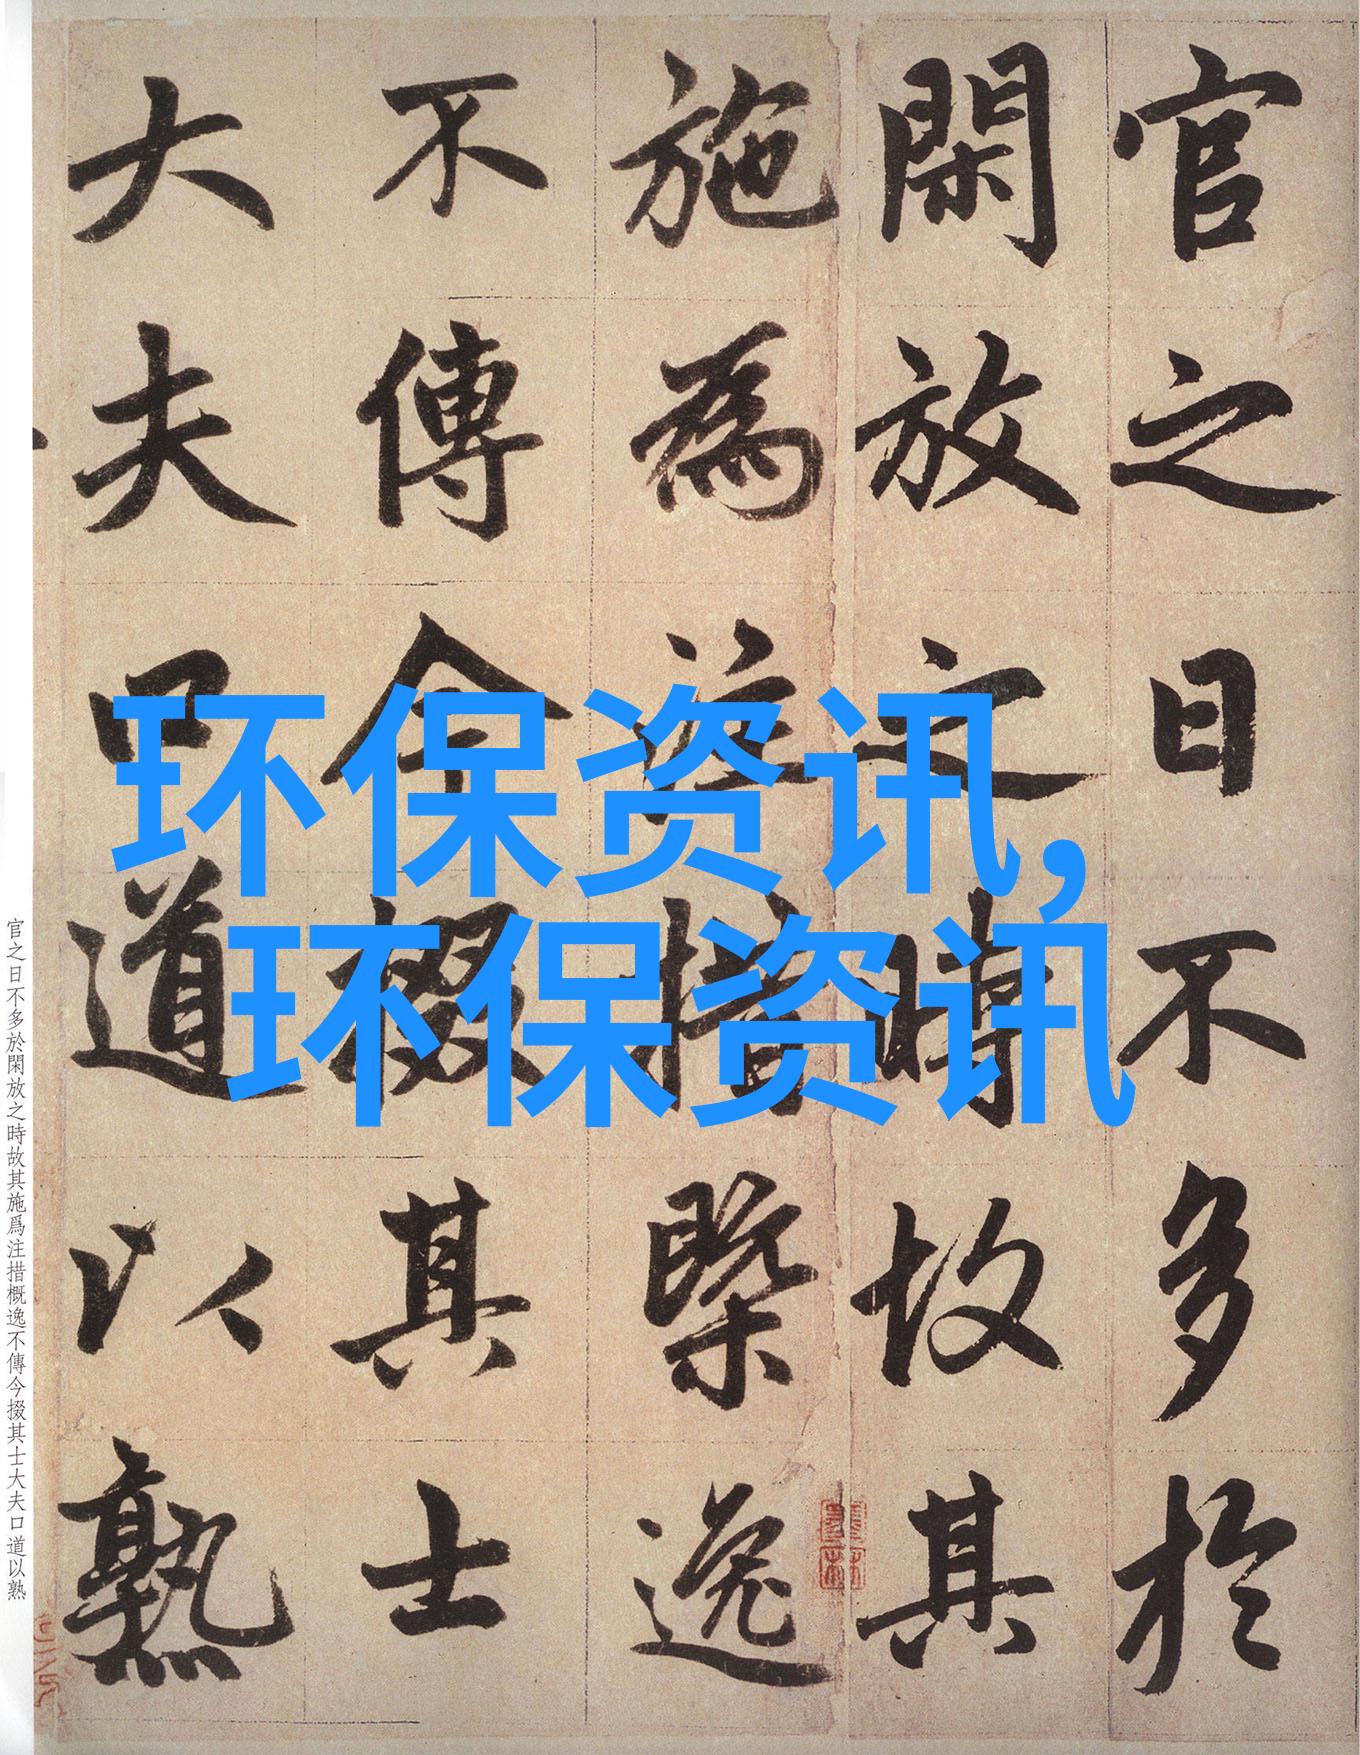 官之日不多於
閑放之時故其
施為注措槩逸
不傳今掇其士
大夫口道以熟
环保资讯，
环保资讯
官之日不多於閑放之時故其施爲注措概逸不傳今掇其士大夫口道以熟